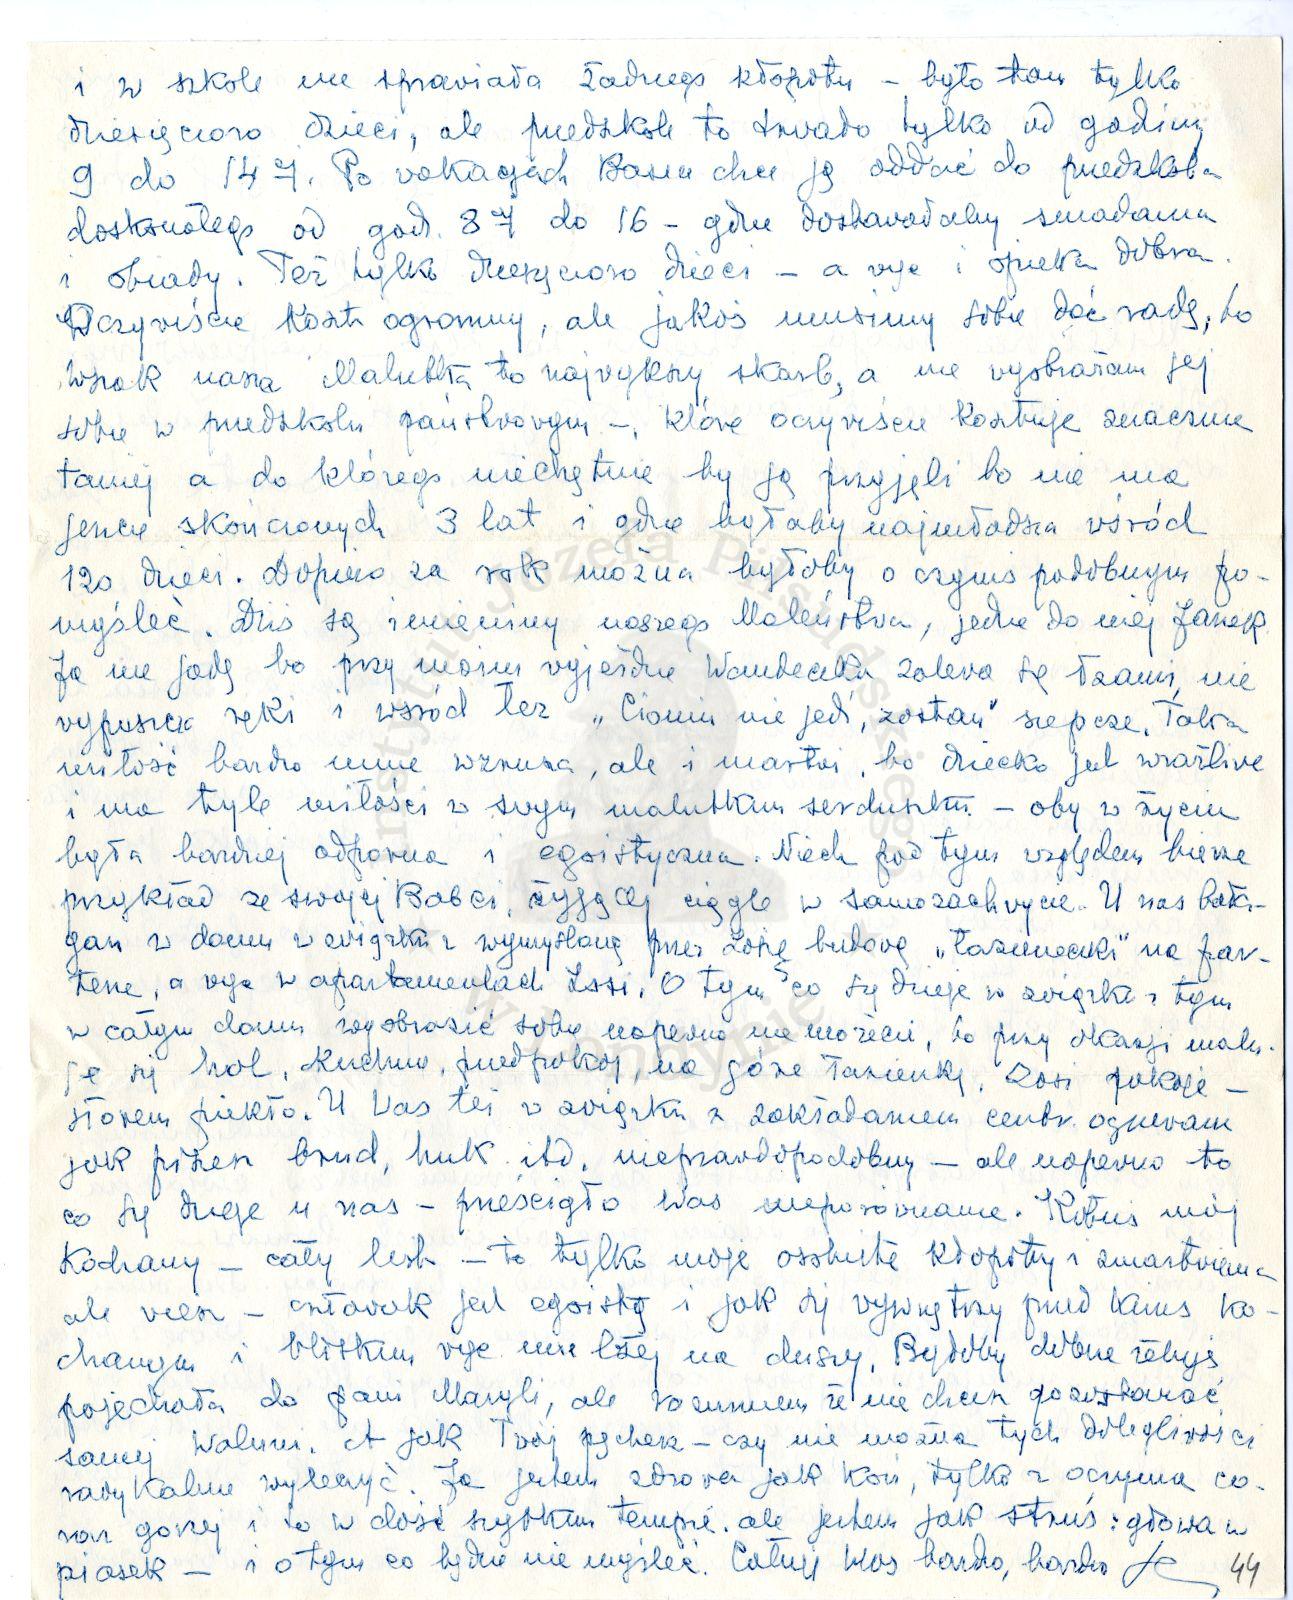 i w szkole nie sprawiała żadnego kłopotu – było tam tylko
dziesięcioro dzieci, ale przedszkole to trwało tylko od godziny
9 do 14 7. Po wakacjach Basia chce ją oddać do przedszkola
doskonałego od god. 87 do 16 – gdzie dostawałaby śniadania
i obiady. Też tylko dziesięcioro dzieci – a więc i opieka dobra.
Oczywiście koszta ogromny, ale jakoś musimy sobie dać radę, bo
wszak nasza Malutka to największy skarb, a nie wyobrażam jej
sobie w przedszkolu państwowym –, które oczywiście kosztuje znacznie
taniej a do którego niechętnie by ją przyjęli bo nie ma
jeszcze skończonych 3 lat i gdzie byłaby najmłodsza wśród
120 dzieci. Dopiero za rok można byłoby o czymś podobnym po-
myśleć. Dziś są imieniny naszego Maleństwa, jedzie do niej Janek.
Ja nie jadę bo przy moim wyjeździe Wandeczka zalewa się łzami, nie
wypuszcza ręki i wśród łez „Ciociu nie jedź, zostań” szepcze. Taka
miłość bardzo mnie wzrusza, ale i martwi, bo dziecko jest wrażliwe
i ma tyle miłości w swym malutkim serduszku – oby w życiu
była bardziej odporna i egoistyczna. Niech pod tym względem bierze
przykład ze swojej Babci, żyjącej ciągle w samozachwycie. U nas bała-
gan w domu w związku z wymyśloną przez Zosię budową „łazieneczki” na par-
terze, a więc w apartamentach Zosi. O tym co się dzieje w związku z tym
w całym domu wyobrazić sobie napewno nie możecie, bo przy okazji malu-
je się hol, kuchnię, przedpokój, na górze łazienkę, Zosi pokoje –
słowem piekło. U Was też w związku z zakładaniem centr. ogrzewania
jak piszesz brud, huk itd. nieprawdopodobny – ale napewno to
co się dzieje u nas – prześcigło Was nieporównanie. Kotuś mój
Kochany – cały list – to tylko moje osobiste kłopoty i zmartwienia
ale wiesz – człowiek jest egoistą i jak się wywnętrzy przed kimś ko-
chanym i bliskim więc mu lżej na duszy. Byłoby dobrze żebyś
pojechała do pani Maryli, ale rozumiem że nie chcesz pozostawiać
samej Waluni. A jak Twój pęcherz – czy nie można tych dolegliwości
radykalnie wyleczyć. Ja jestem zdrowa jak koń, tylko z oczyma co-
raz gorzej i to w dość szybkim tempie. ale jestem jak struś: głowa w
piasek – i o tym co będzie nie myśleć. Całuję Was bardzo, bardzo
44
Instytut Józefa Piłsudskiego
w Londynie